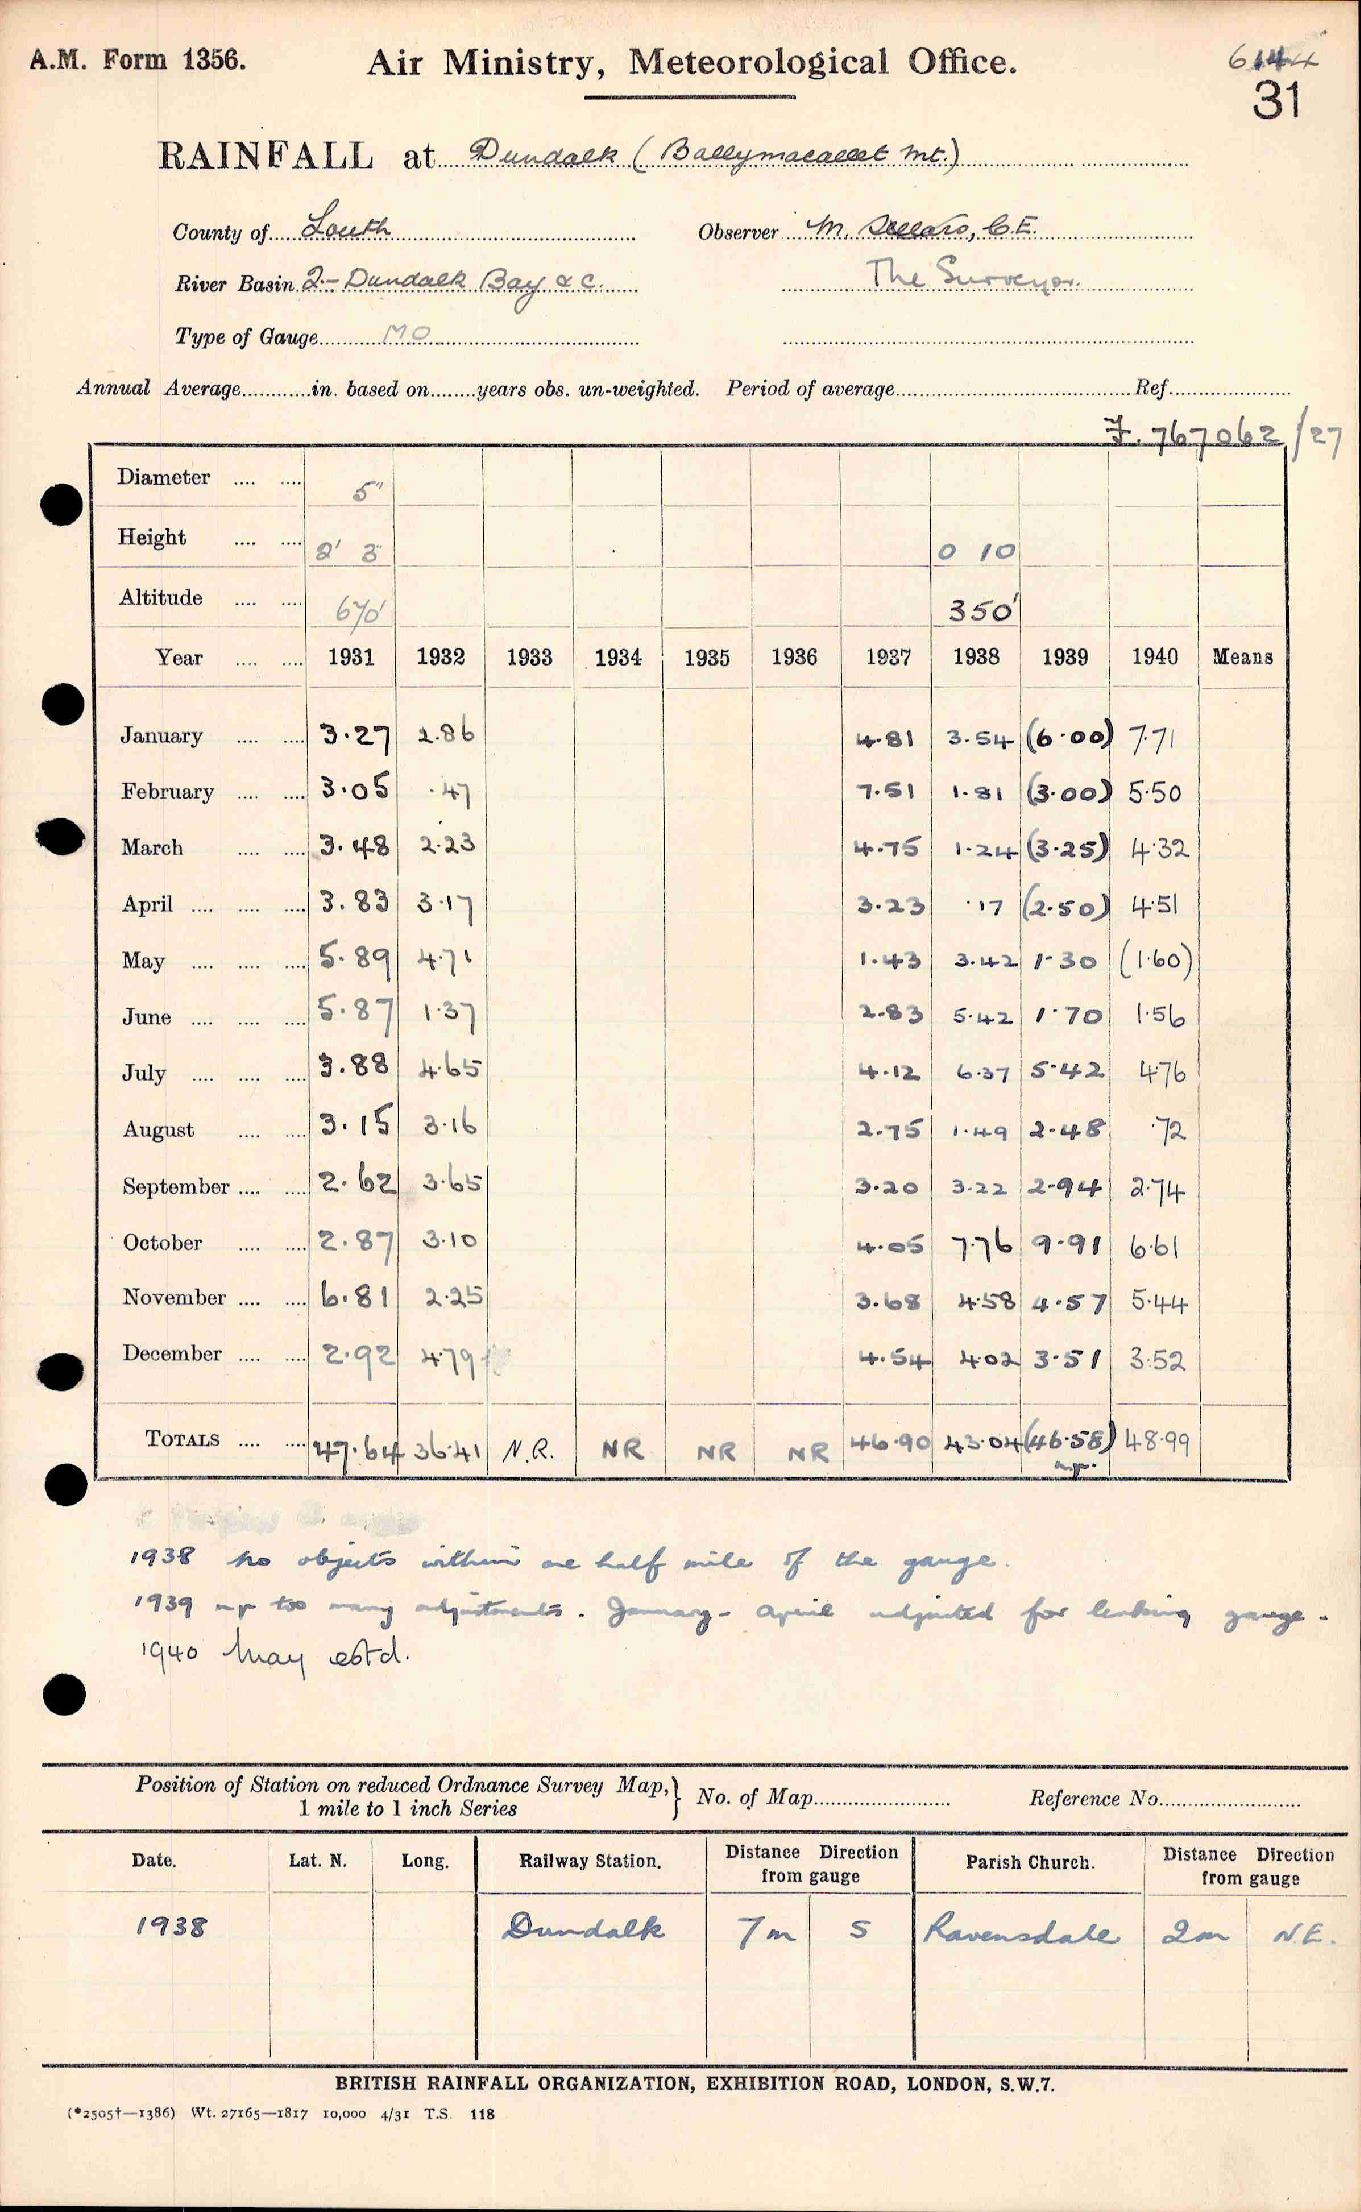 A.M. Form 1356. Air Ministry, Meteorological Office. 6144
31
RAINFALL at Dundalk (Ballymacallet Mt.)
County of Louth Observer M. C.E.
River Basin 2 - Dundalk Bay &c. The Surveyor.
Type of Gauge MO
Annual Average............in. based on........years obs. un-weighted. Period of average........Ref........
767062/27
Diameter .... .... 5"
Height .... .... 2' 3" 0 10
Altitude .... .... 670' 350'
Year .... .... 1931 1932 1933 1934 1935 1936 1937 1938 1939 1940 Means
January .... .... 3.27 2.86 4.81 3.54 (6.00) 7.71
February .... .... 3.05 .47 7.51 1.81 (3.00) 5.50
March .... .... 3.48 2.23 4.75 1.24 (3.25) 4.32
April .... .... .... 3.83 3.17 3.23 .17 (2.50) 4.51
May .... .... .... 5.89 4.71 1.43 3.42 1.30 (1.60)
June .... .... .... 5.87 1.37 2.83 5.42 1.70 1.56
July .... .... .... 3.88 4.65 4.12 6.37 5.42 4.76
August .... .... 3.15 3.16 2.75 1.49 2.48 .72
September .... .... 2.62 3.65 3.20 3.22 2.94 2.74
October .... .... 2.87 3.10 4.05 7.76 9.91 6.61
November .... .... 6.81 2.25 3.68 4.58 4.57 5.44
December .... .... 2.92 4.79 4.54 4.02 3.51 3.52
TOTALS .... .... 47.64 36.41 N.R. NR NR NR 46.90 43.04 (46.58) 48.99
n.p.
1938 No objects within one half mile of the gauge.
1939 n.p. too many adjustments. January - April adjusted for leaking gauge.
1940 May estd.
Position of Station on reduced Ordnance Survey Map,} No. of Map........ Reference No........
1 mile to 1 inch Series
Date. Lat. N. Long. Railway Station. Distance Direction from gauge Parish Church. Distance Direction from gauge
1938 Dundalk 7m S Ravensdale 2m N.E.
BRITISH RAINFALL ORGANIZATION, EXHIBITION ROAD, LONDON, S.W.7.
(*2505†—1386) Wt. 27165—1817 10,000 4/31 T.S. 118